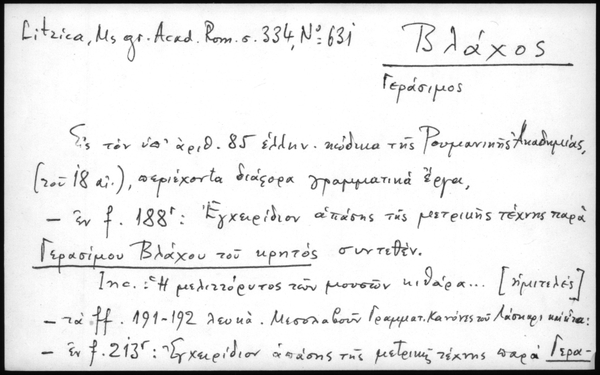 Litzica, Ms gr. Acad. Rom. σ. 334, Nο: 631
Βλάχος
Γεράσιμος
Εἰς τὸν ὑπ' ἀριθ. 85 ἑλλην. κώδικα τῆς Ρουμανικῆς Ἀκαδημίας,
(τοῦ 18 αἰ.), περιέχοντα διάφορα γραμματικά ἔργα,
– ἐν f. 188r: Ἐγχειρίδιον ἁπάσης τῆς μετρικῆς τέχνης παρὰ
Γερασίμου Βλάχου τοῦ κρητός συντεθέν.
Inc.: Ἡ μελιττόρυτος τῶν μουσῶν κιθάρα... [ἡμιτελές]
– τὰ ff. 191-192 λευκά. Μεσολαβοῦν Γραμματ. Κανόνες τοῦ Λάσκαρι
– ἐν f. 213r: Ἐγχειρίδιον ἁπάσης τῆς μετρικῆς τέχνης παρὰ Γερα-